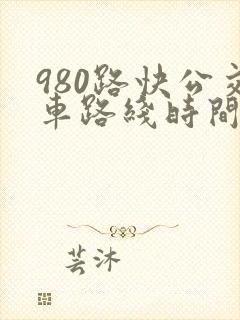 980路快公交
車路綫時間
芸沐